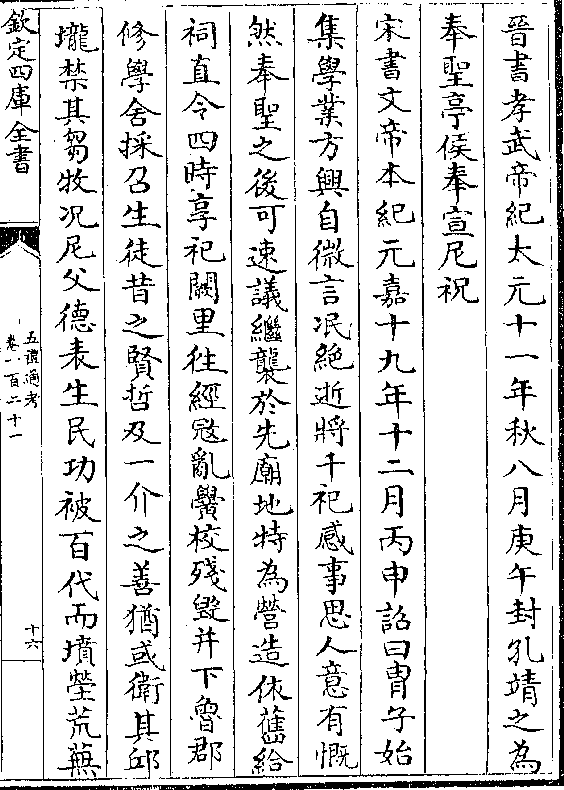 晉書孝武帝紀太元十一年秋八月庚午封孔靖之為
奉聖亭侯奉宣尼祀
宋書文帝本紀元嘉十九年十二月丙申詔曰胄子始
集學業方興自微言泯絶逝將千祀感事思人意有慨
然奉聖之後可速議繼襲於先廟地特為營造依舊給
祠直令四時享祀闕里往經宼亂黌校殘毁并下魯郡
修學舍採召生徒昔之賢哲及一介之善猶或衛其邱
壠禁其芻牧况尼父德表生民功被百代而墳塋荒蕪
欽定四庫全書
五禮通考
卷一百二十一
十六